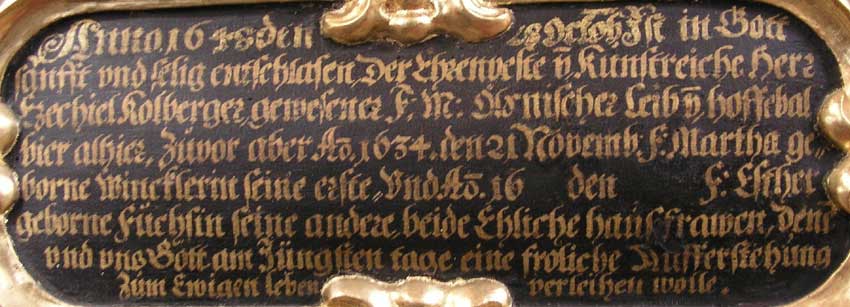 Anno 1648 den 18 Octob: Ist in Gott
sanfft vnd selig entschlafen, Der Ehrenveste vn̄ Kunstreiche Herr
Ezechiel Kolberger gewesener F. M. Ölsnischer Leib vn̄ hoffebal
bier alhier, Zuvor aber Aō. 1634. den 21 Novemb. F. Martha ge-
borne Wincklerin seine erste, Vnd Aō. 16 den F: Esther
geborne Füchsin seine andere, beide Ehliche hausfrawen, Den̄
vnd vns Gott am Jüngsten tage eine froliche Aufferstehung
Zum Ewigen leben verleihen wolle.